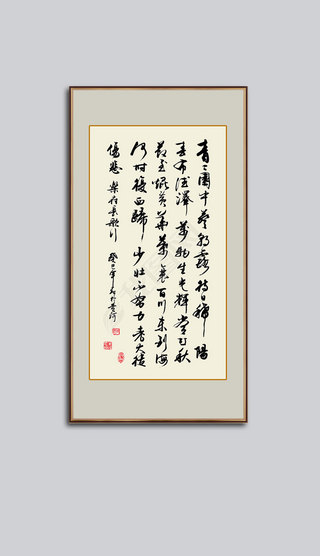 青々園中葵朝露待日晞陽
春布德澤萬物生光輝常恐秋
節至焜黃華葉衰百川東到海
何时復西歸少壮不努力老大徒
傷悲 樂府長歌行
癸巳年